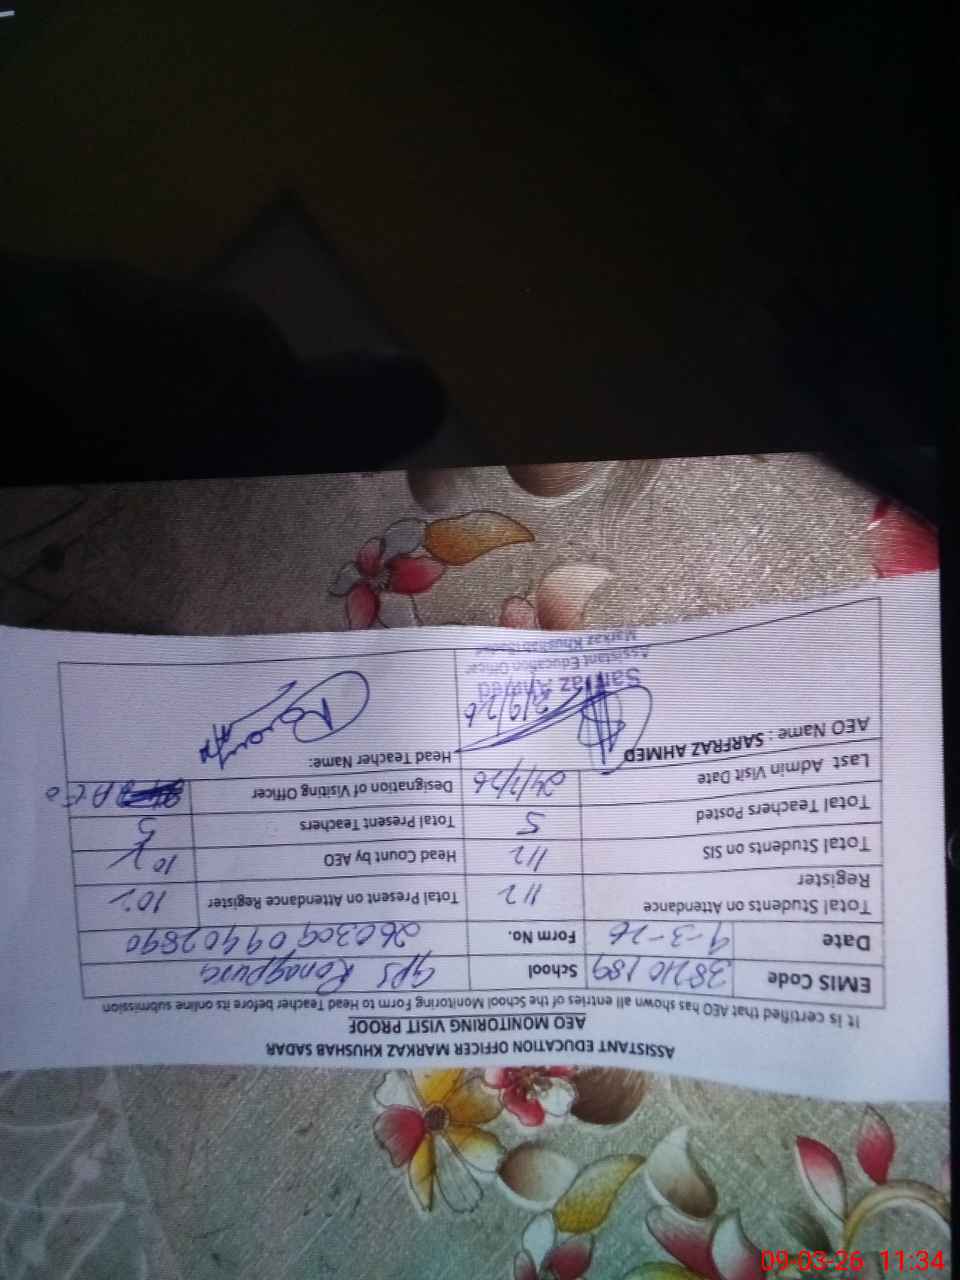 ASSISTANT EDUCATION OFFICER MARKAZ KHUSHAB SADAR
AEO MONITORING VISIT PROOF
It is certified that AEO has shown all entries of the School Monitoring Form to Head Teacher before its online submission
EMIS Code 38210189 School GPS
Date 9-3-26 Form No. 26030909402890
Total Students on Attendance Register 112 Total Present on Attendance Register 102
Total Students on SIS 112 Head Count by AEO 102
Total Teachers Posted 5 Total Present Teachers 5
Last Admin Visit Date 24/1/26 Designation of Visiting Officer AEO
AEO Name : SARFRAZ AHMED Head Teacher Name:
Sarfraz Ahmed
Assistant Education Officer
Markaz Khushab
09-03-26 11:34